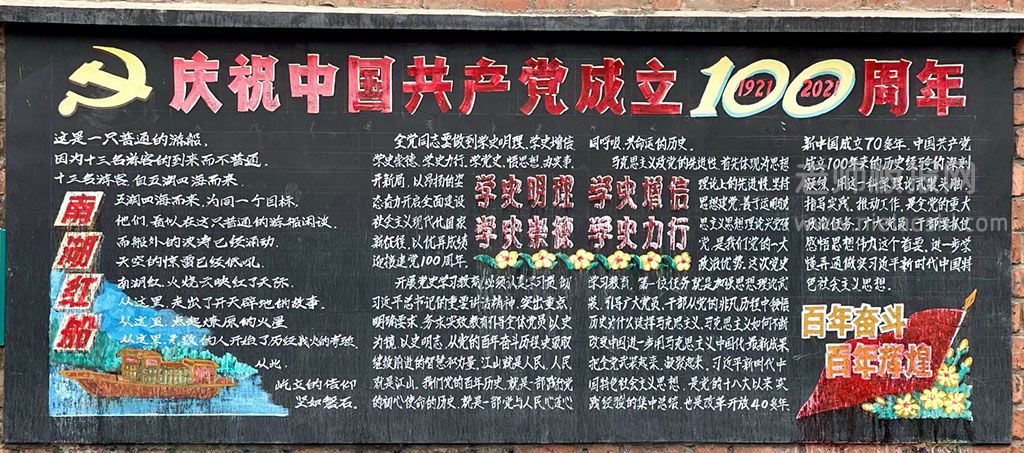 庆祝中国共产党成立100周年
1921 2021
南湖红船
这是一只普通的游船.
因为十三名游客的到来而不普通.
十三名游客.自五湖四海而来.
五湖四海而来.为同一个目标.
他们.看似在这只普通的游船闲谈.
而船外的波涛已经涌动.
天空的惊雷已经低吼.
南湖红.火烧云映红了天际.
从这里.走出了开天辟地的故事.
从这里.点起燎原的火星
从这里.无数的人开始了历经战火的考验
从此.
屹立的信仰
坚如磐石.
全党同志要做到学史明理.学史增信
学史崇德.学史力行.学党史.悟思想.办实事.
开新局.以昂扬的姿
态奋力开启全面建设
社会主义现代化国家
新征程.以优异成绩
迎接建党100周年.
开展党史学习教育.必须认真学习贯彻
习近平总书记的重要讲话精神.突出重点.
明确要求.务求实效.教育引导全体党员以史
为镜.以史明志.从党的百年奋斗历程汲取
继续前进的智慧和力量.江山就是人民.人民
就是江山.我们党的百年历史.就是一部践行党
的初心使命的历史.就是一部党与人民心连心
学史明理 学史增信
学史崇德 学史力行
同呼吸.共命运的历史.
马克思主义政党的先进性.首先体现为思想
理论上的先进性.坚持
思想建党.
党.是我们党的一大
政治优势.这次党史
学习教育.第一位任务就是加强思想理论武
装.引导广大党员.干部从党的非凡历程中领悟
历史为什么选择马克思主义.马克思主义如何不断
改变中国.进一步用马克思主义中国化最新成果
习近平新时代中
国特色社会主义思想.是党的十八大以来实
践经验的集中总结.也是改革开放40多年.
新中国成立70多年.中国共产党
成立100年来的历史经验的深刻
凝结.用这一科学理论武装头脑.
指导实践.推动工作.是全党的重大
政治任务.广大党员.干部要抓住
感悟思想伟力这个首要.进一步学
懂弄通做实习近平新时代中国特
色社会主义思想.
百年奋斗
百年辉煌